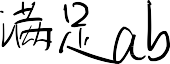 满足ab